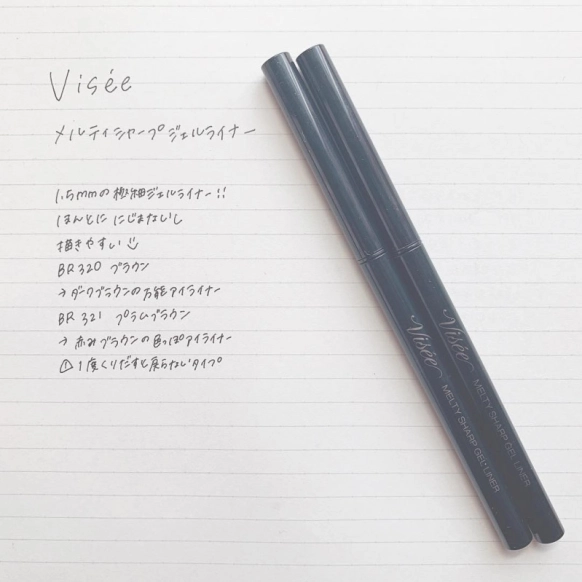 Visée
メルティシャープジェルライナー
1.5mmの極細ジェルライナー!!
ほんとに にじまないし
描きやすい
BR320 ブラウン
→ダークブラウンの万能アイライナー
BR 321 プラムブラウン
→赤みブラウンの色っぽアイライナー
⚠1度くりだすと戻らないタイプ
Visée
MELTY SHARP GEL LINER
Visée
MELTY SHARP GEL LINER